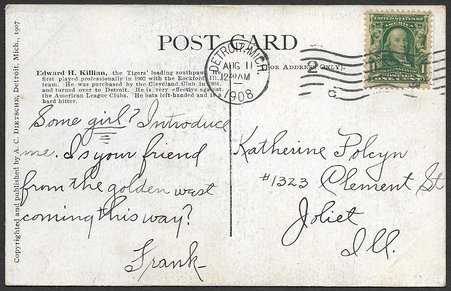 POST CARD
(FOR ADDRESS ONLY).
DETROIT, MICH.
AUG 11
1908
2
Edward H. Killian, the Tigers' leading southpaw. He
first played professionally in 1902 with the Rockford, Ill.,
team. He was purchased by the Cleveland Club in 1904,
and turned over to Detroit. He is very effective against
the American League Clubs. He bats left-handed and is a
hard hitter.
Copyrighted and published by A. C. DIETSCHE, Detroit, Mich., 1907
Some girl? Introduce
me. Is your friend
from the golden west
coming this way?
Frank-
Katherine Polcyn
#1323 Clement St
Joliet
Ill.